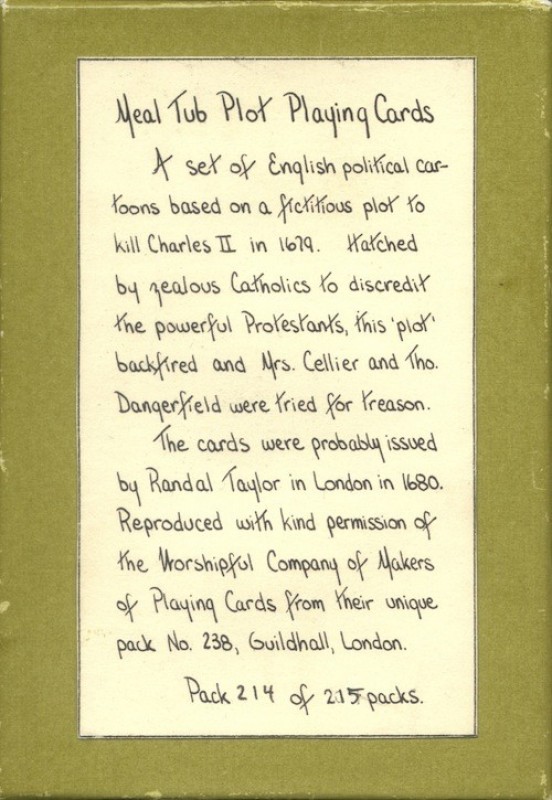 Meal Tub Plot Playing Cards
A set of English political car-
toons based on a fictitious plot to
kill Charles II in 1679. Hatched
by zealous Catholics to discredit
the powerful Protestants, this 'plot'
backfired and Mrs. Cellier and Tho.
Dangerfield were tried for treason.
The cards were probably issued
by Randal Taylor in London in 1680.
Reproduced with kind permission of
the Worshipful Company of Makers
of Playing Cards from their unique
pack No. 238, Guildhall, London.
Pack 214 of 215 packs.